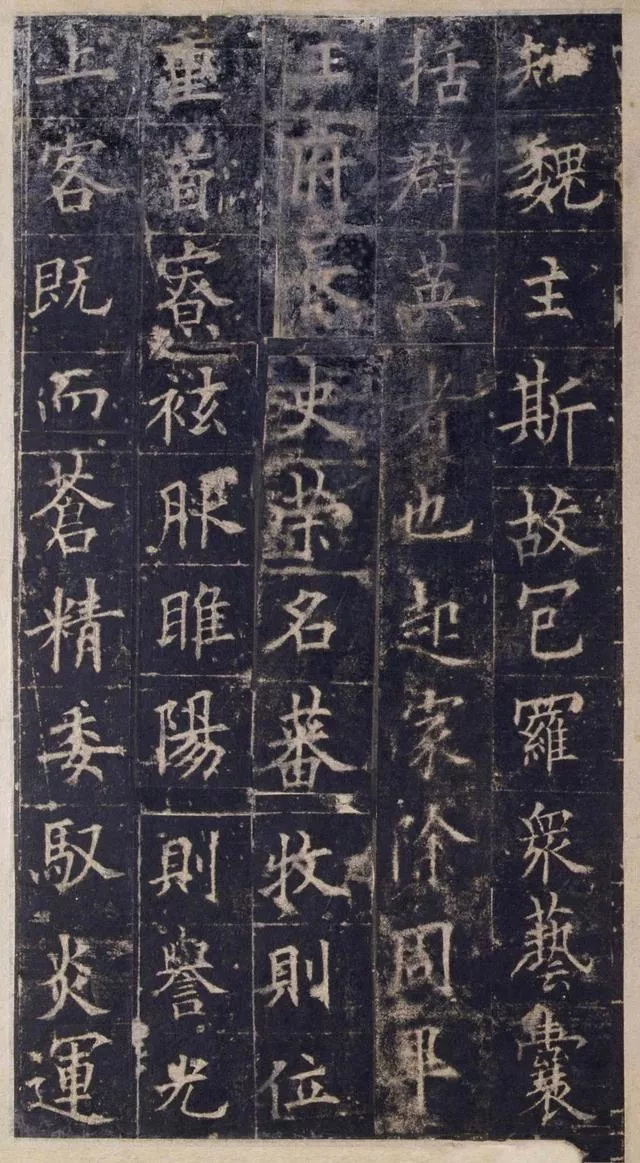 魏主斯故包羅眾藝囊
括群英者也起家除周
王府長史榮名蕃牧則位
重首寮袨服睢陽則譽光
上客既而蒼精委馭炎運